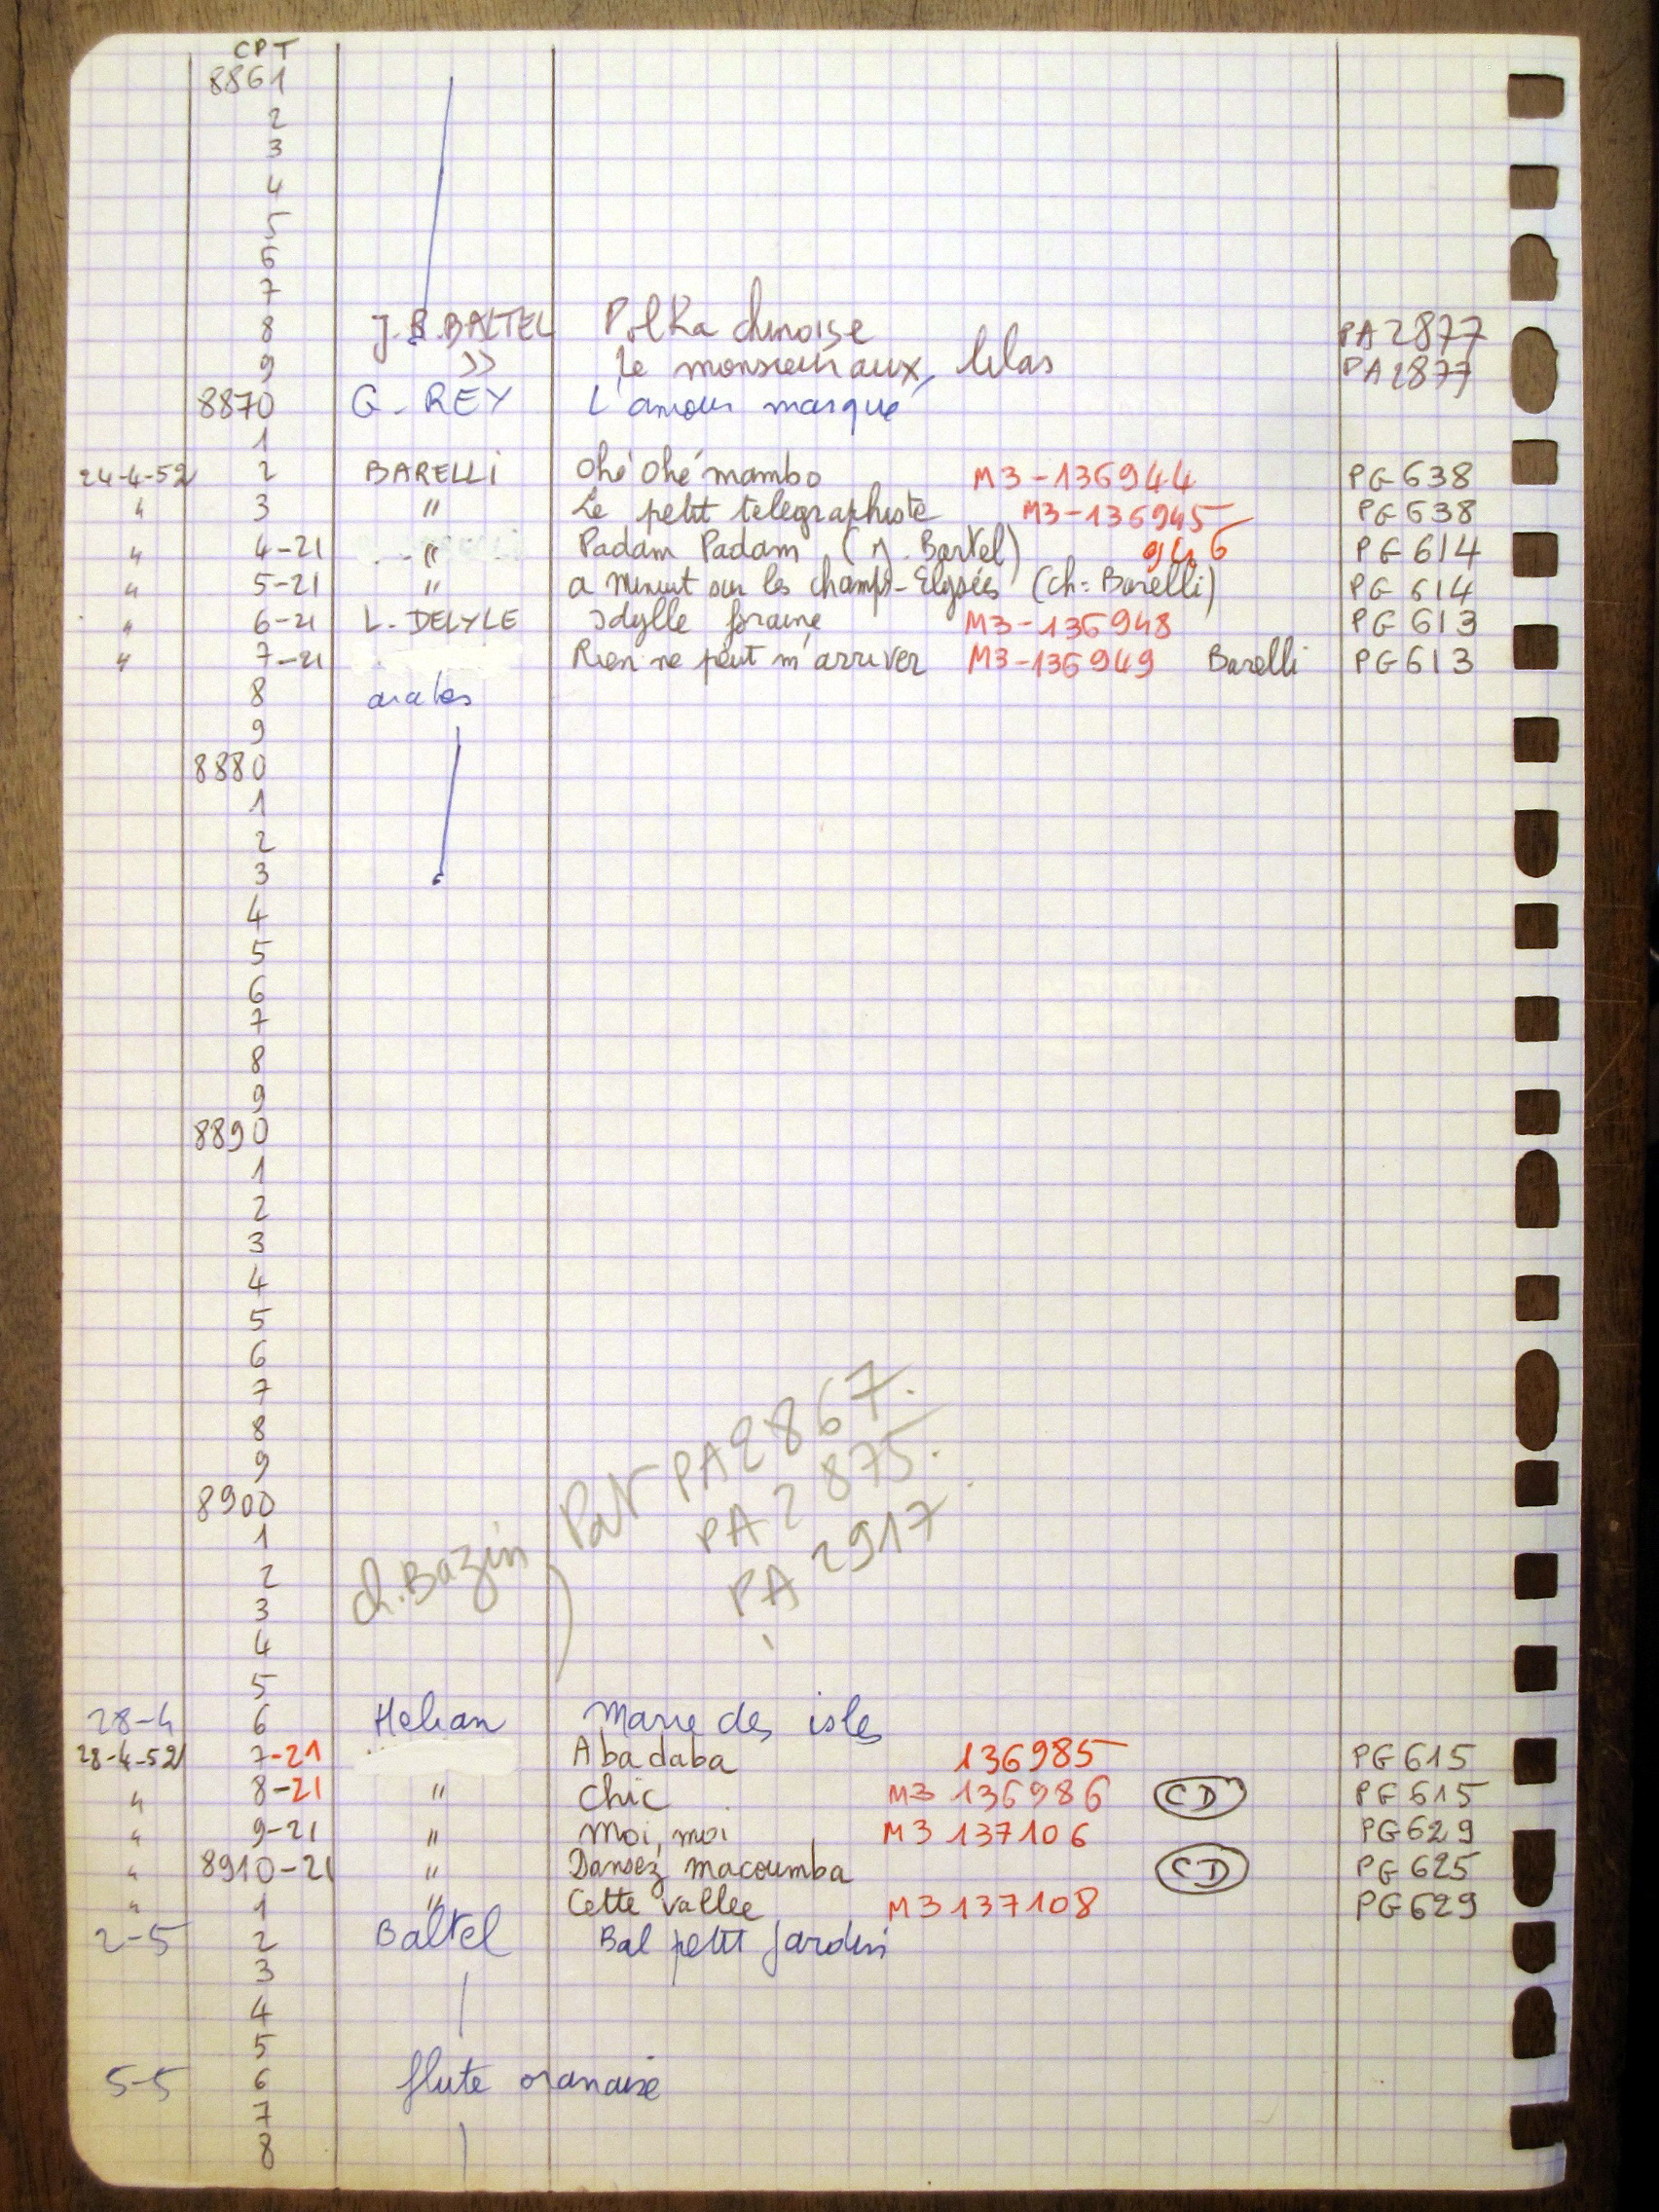 CPT
8861
2
3
4
5
6
7
8 J.B. BALTEL Polka chinoise PA 2877
9 " Le monsieur aux lilas PA 2877
8870 G. REY L'amour marqué
1
24-4-52 2 BARELLI Ohé Ohé mambo M3-136944 PG 638
" 3 " Le petit telegraphiste M3-136945 PG 638
" 4-21 " Padam Padam (J. Bartel) 946 PG 614
" 5-21 " a Minuit sur les champs-Elysées (ch: Barelli) PG 614
" 6-21 L. DELYLE Idylle foraine M3-136948 PG 613
" 7-21 Rien ne peut m'arriver M3-136949 Barelli PG 613
8 arabes
9
8880
1
2
3
4
5
6
7
8
9
8890
1
2
3
4
5
6
7
8
9
8900
1
2
3
4
5
ch. Bazin Pat PA 2867.
PA 2875.
PA 2917.
28-4 6 Helian Marie des isles
28-4-52 7-21 Abadaba 136985 PG 615
" 8-21 " Chic M3 136986 CD PG 615
" 9-21 " Moi, moi M3 137106 PG 629
" 8910-21 " Dansez macoumba CD PG 625
" 1 " Cette vallee M3 137108 PG 629
2-5 2 Baltel Bal petit jardin
3
4
5
5-5 6 flute oranaise
7
8